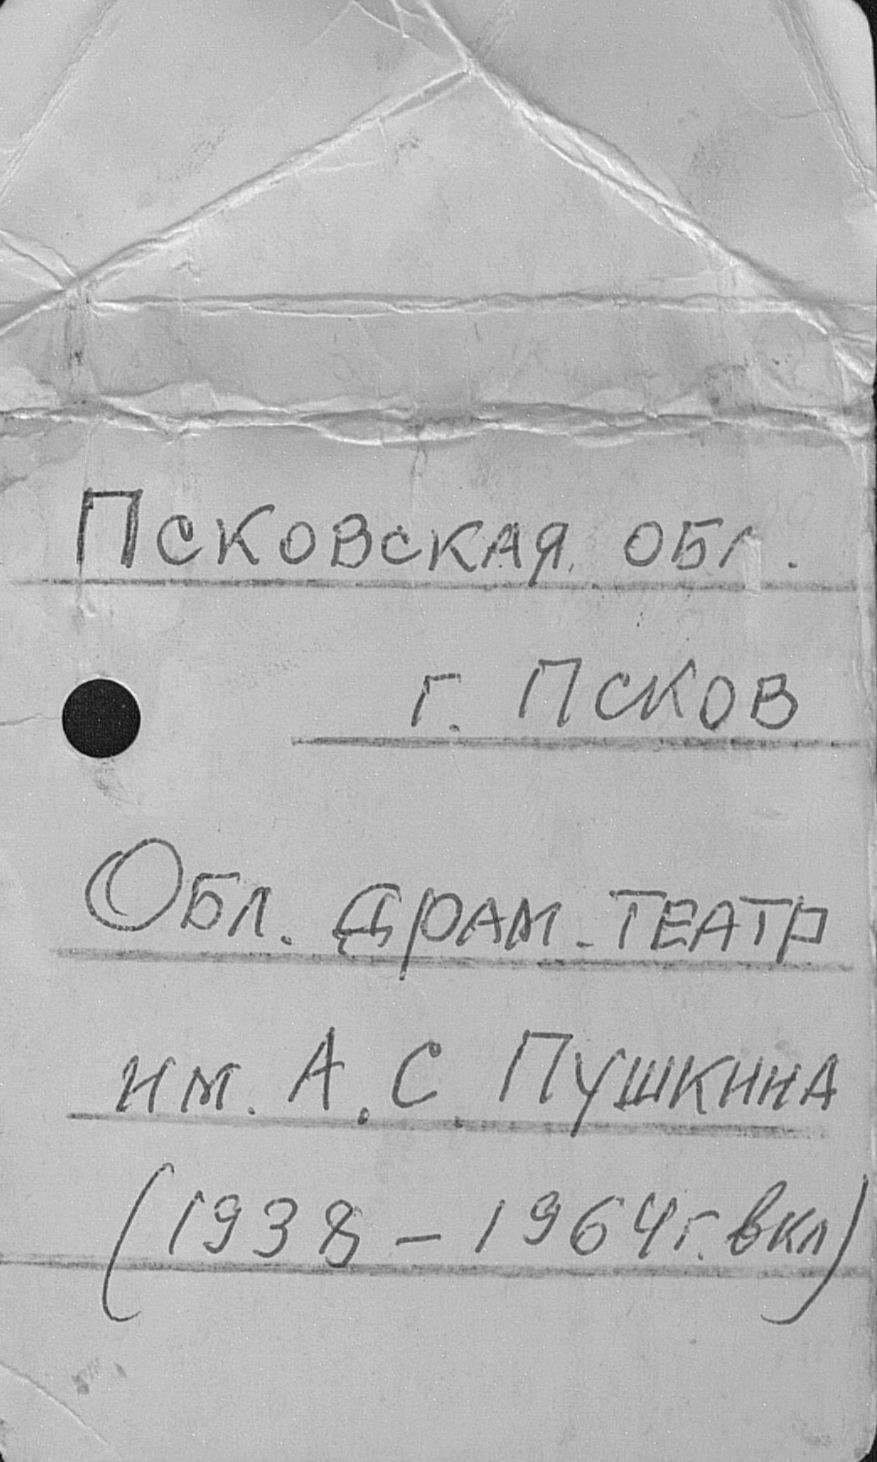 Псковская обл.
г. Псков
Обл. драм. театр
им. А. С. Пушкина
(1938 – 1964 г. вкл)